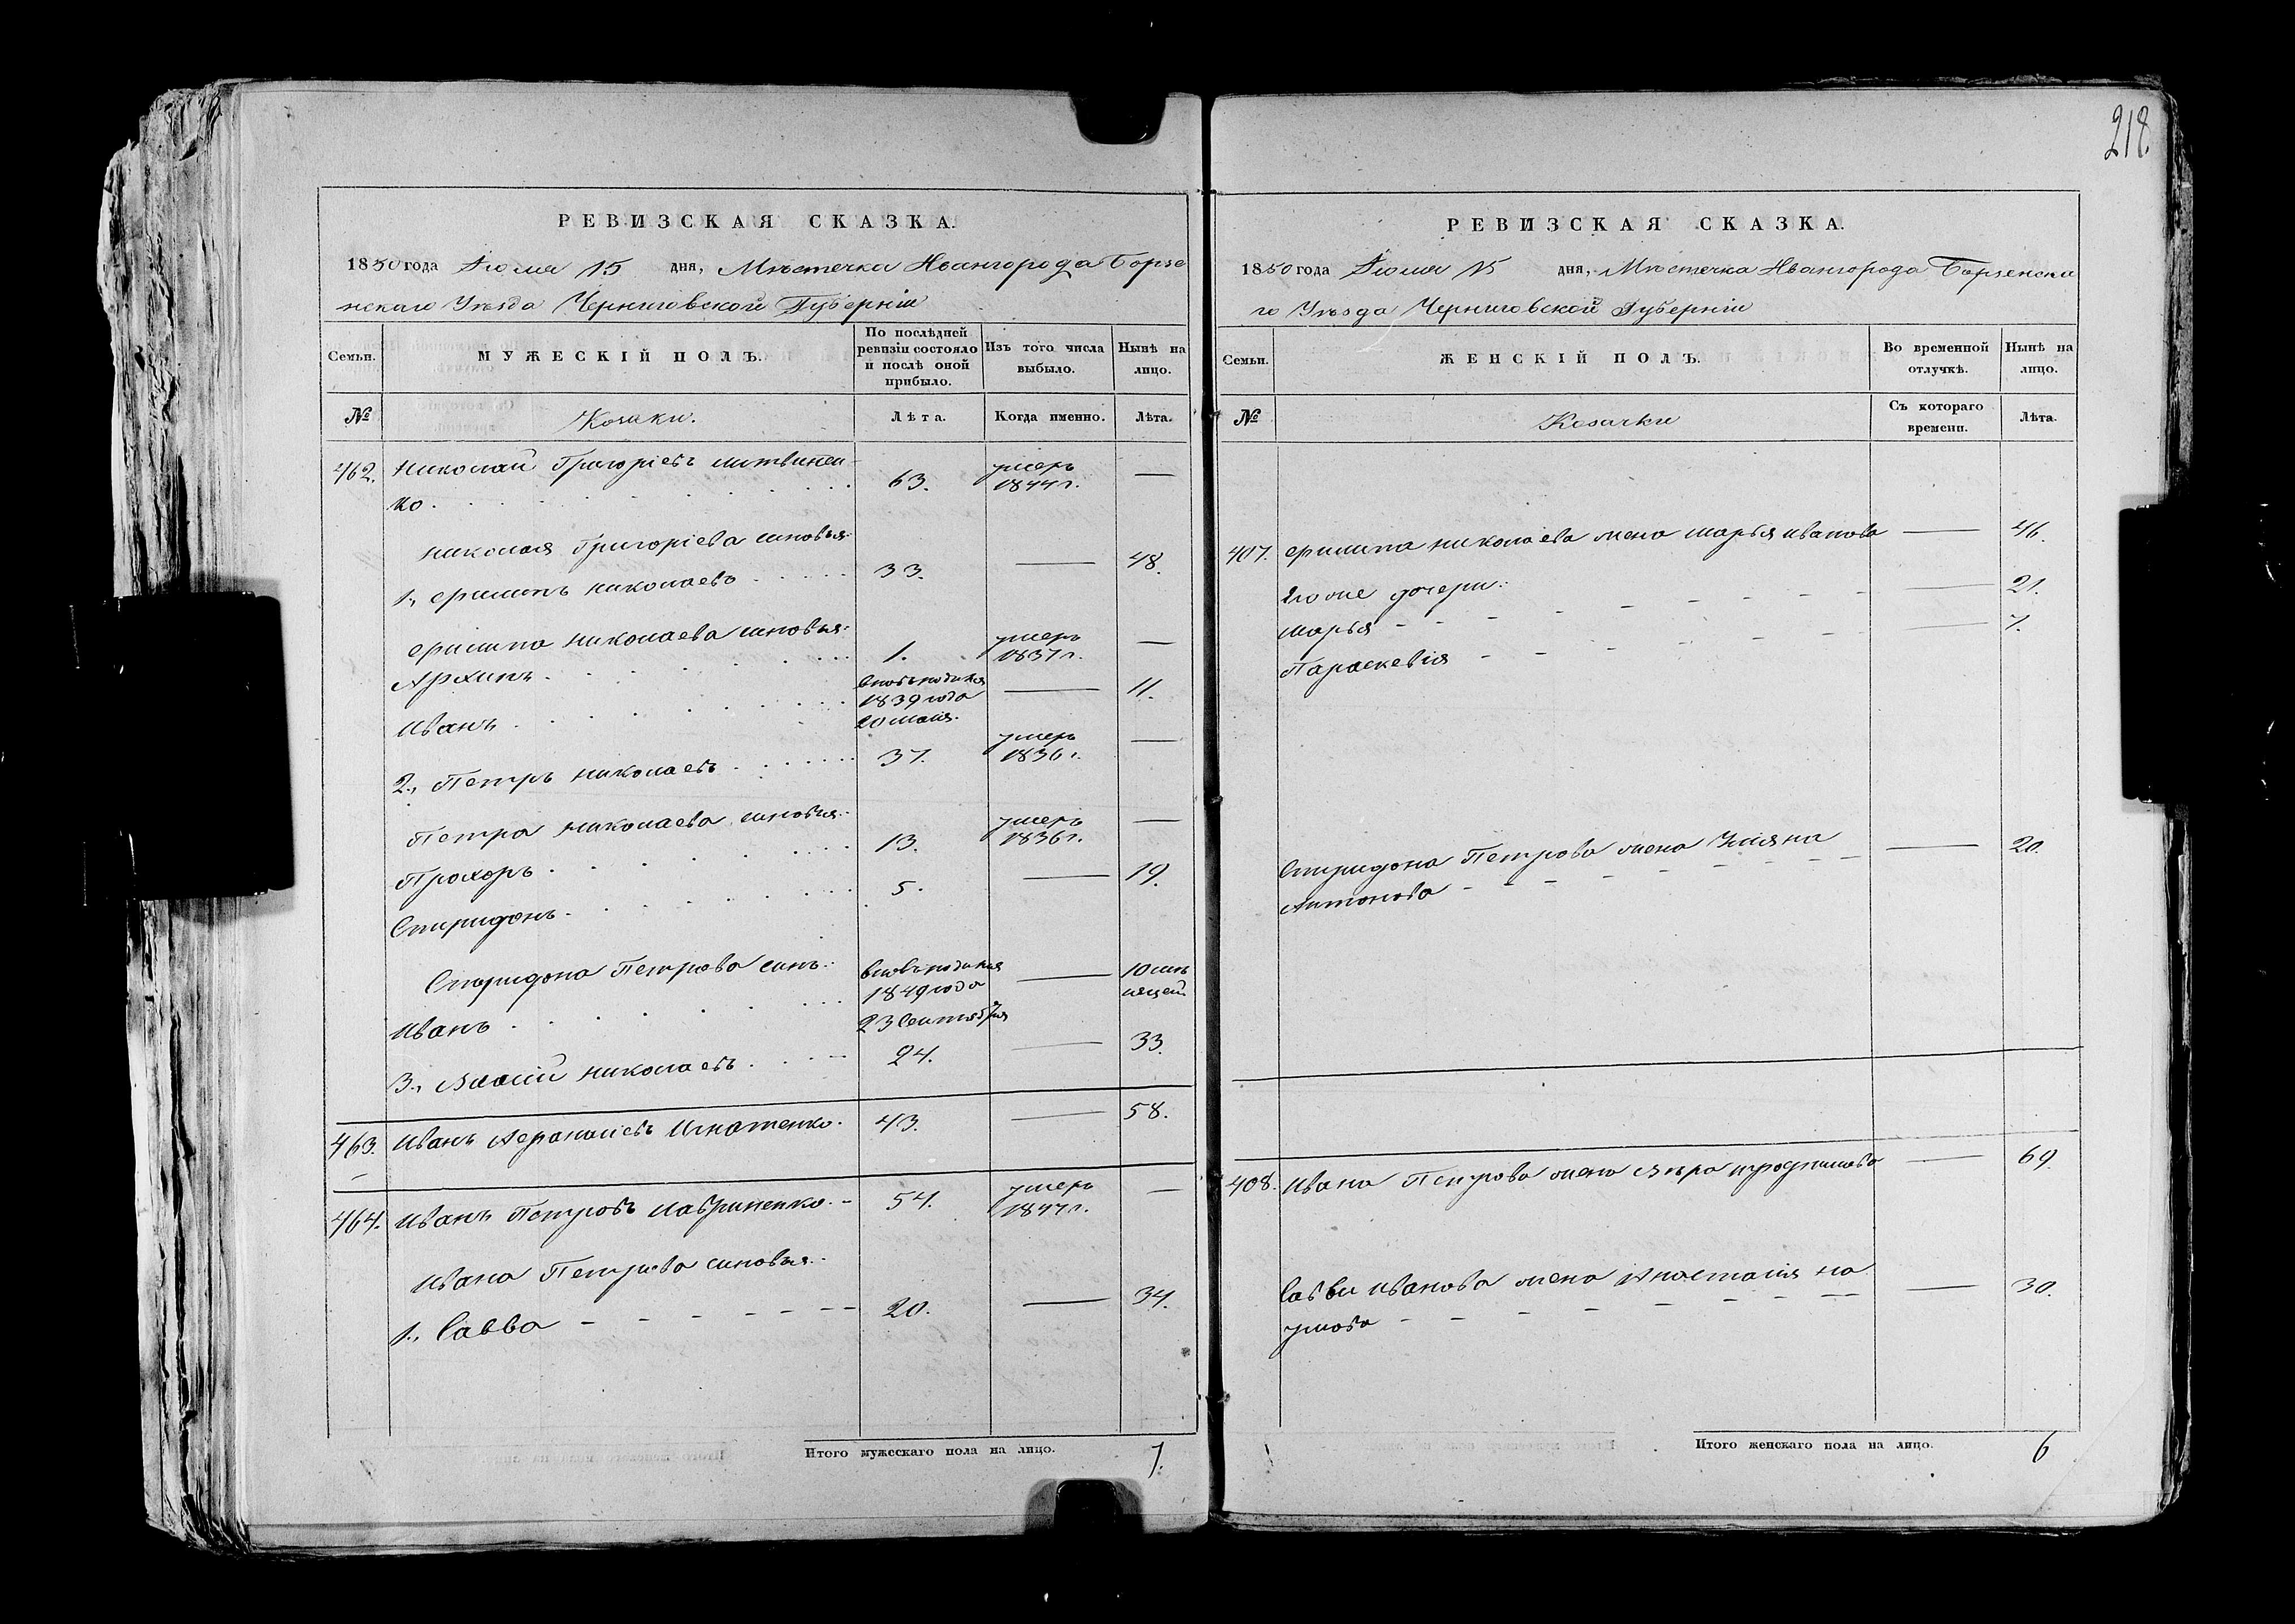 218.
РЕВИЗСКАЯ СКАЗКА.
1850 года Июля 15 дня, Мѣстечка Ивангорода Борзе
нскаго Уѣзда Черниговской Губерніи
Семьи.
МУЖЕСКІЙ ПОЛЪ.
По послѣдней ревизіи состояло и послѣ оной прибыло.
Изъ того числа выбыло.
Нынѣ на лицо.
№
Козаки.
Лѣта.
Когда именно.
Лѣта.
462. Николай Григоріевъ Литвинен
ко 63. умеръ 1844 г. —
Николая Григоріева сыновья:
1., Филипъ Николаевъ 33. — 48.
Филипа Николаева сыновья:
Архипъ 1. умеръ 1837 г. —
Иванъ вновь родился 1839 года 20 мая. — 11.
2., Петръ Николаевъ 37. умеръ 1836 г. —
Петра Николаева сыновья:
Прохоръ 13. умеръ 1836 г. —
Спиридонъ 5. — 19.
Спиридона Петрова сынъ:
Иванъ вновь родился 1849 года 23 Сентября — 10 мѣсяцей
3., Власій Николаевъ 24. — 33.
463. Иванъ Афанасіевъ Игнатенко. 43. — 58.
464. Иванъ Петровъ Лавриненко. 54. умеръ 1844 г. —
Ивана Петрова сыновья:
1., Савва 20. — 34.
Итого мужескаго пола на лицо. 7.
РЕВИЗСКАЯ СКАЗКА.
1850 года Июля 15 дня, Мѣстечка Ивангорода Борзенска
го Уѣзда Черниговской Губерніи
Семьи.
ЖЕНСКІЙ ПОЛЪ.
Во временной отлучкѣ.
Нынѣ на лицо.
№
Козачки
Съ котораго времени.
Лѣта.
407. Филипа Николаева жена Марья Иванова — 46.
Его же дочери:
Марья — 21.
Параскевія — 7.
Спиридона Петрова жена Уліяна
Антонова — 20.
408. Ивана Петрова жена Вѣра — 69.
Саввы Иванова жена Анастасія На
умова — 30.
Итого женскаго пола на лицо. 6